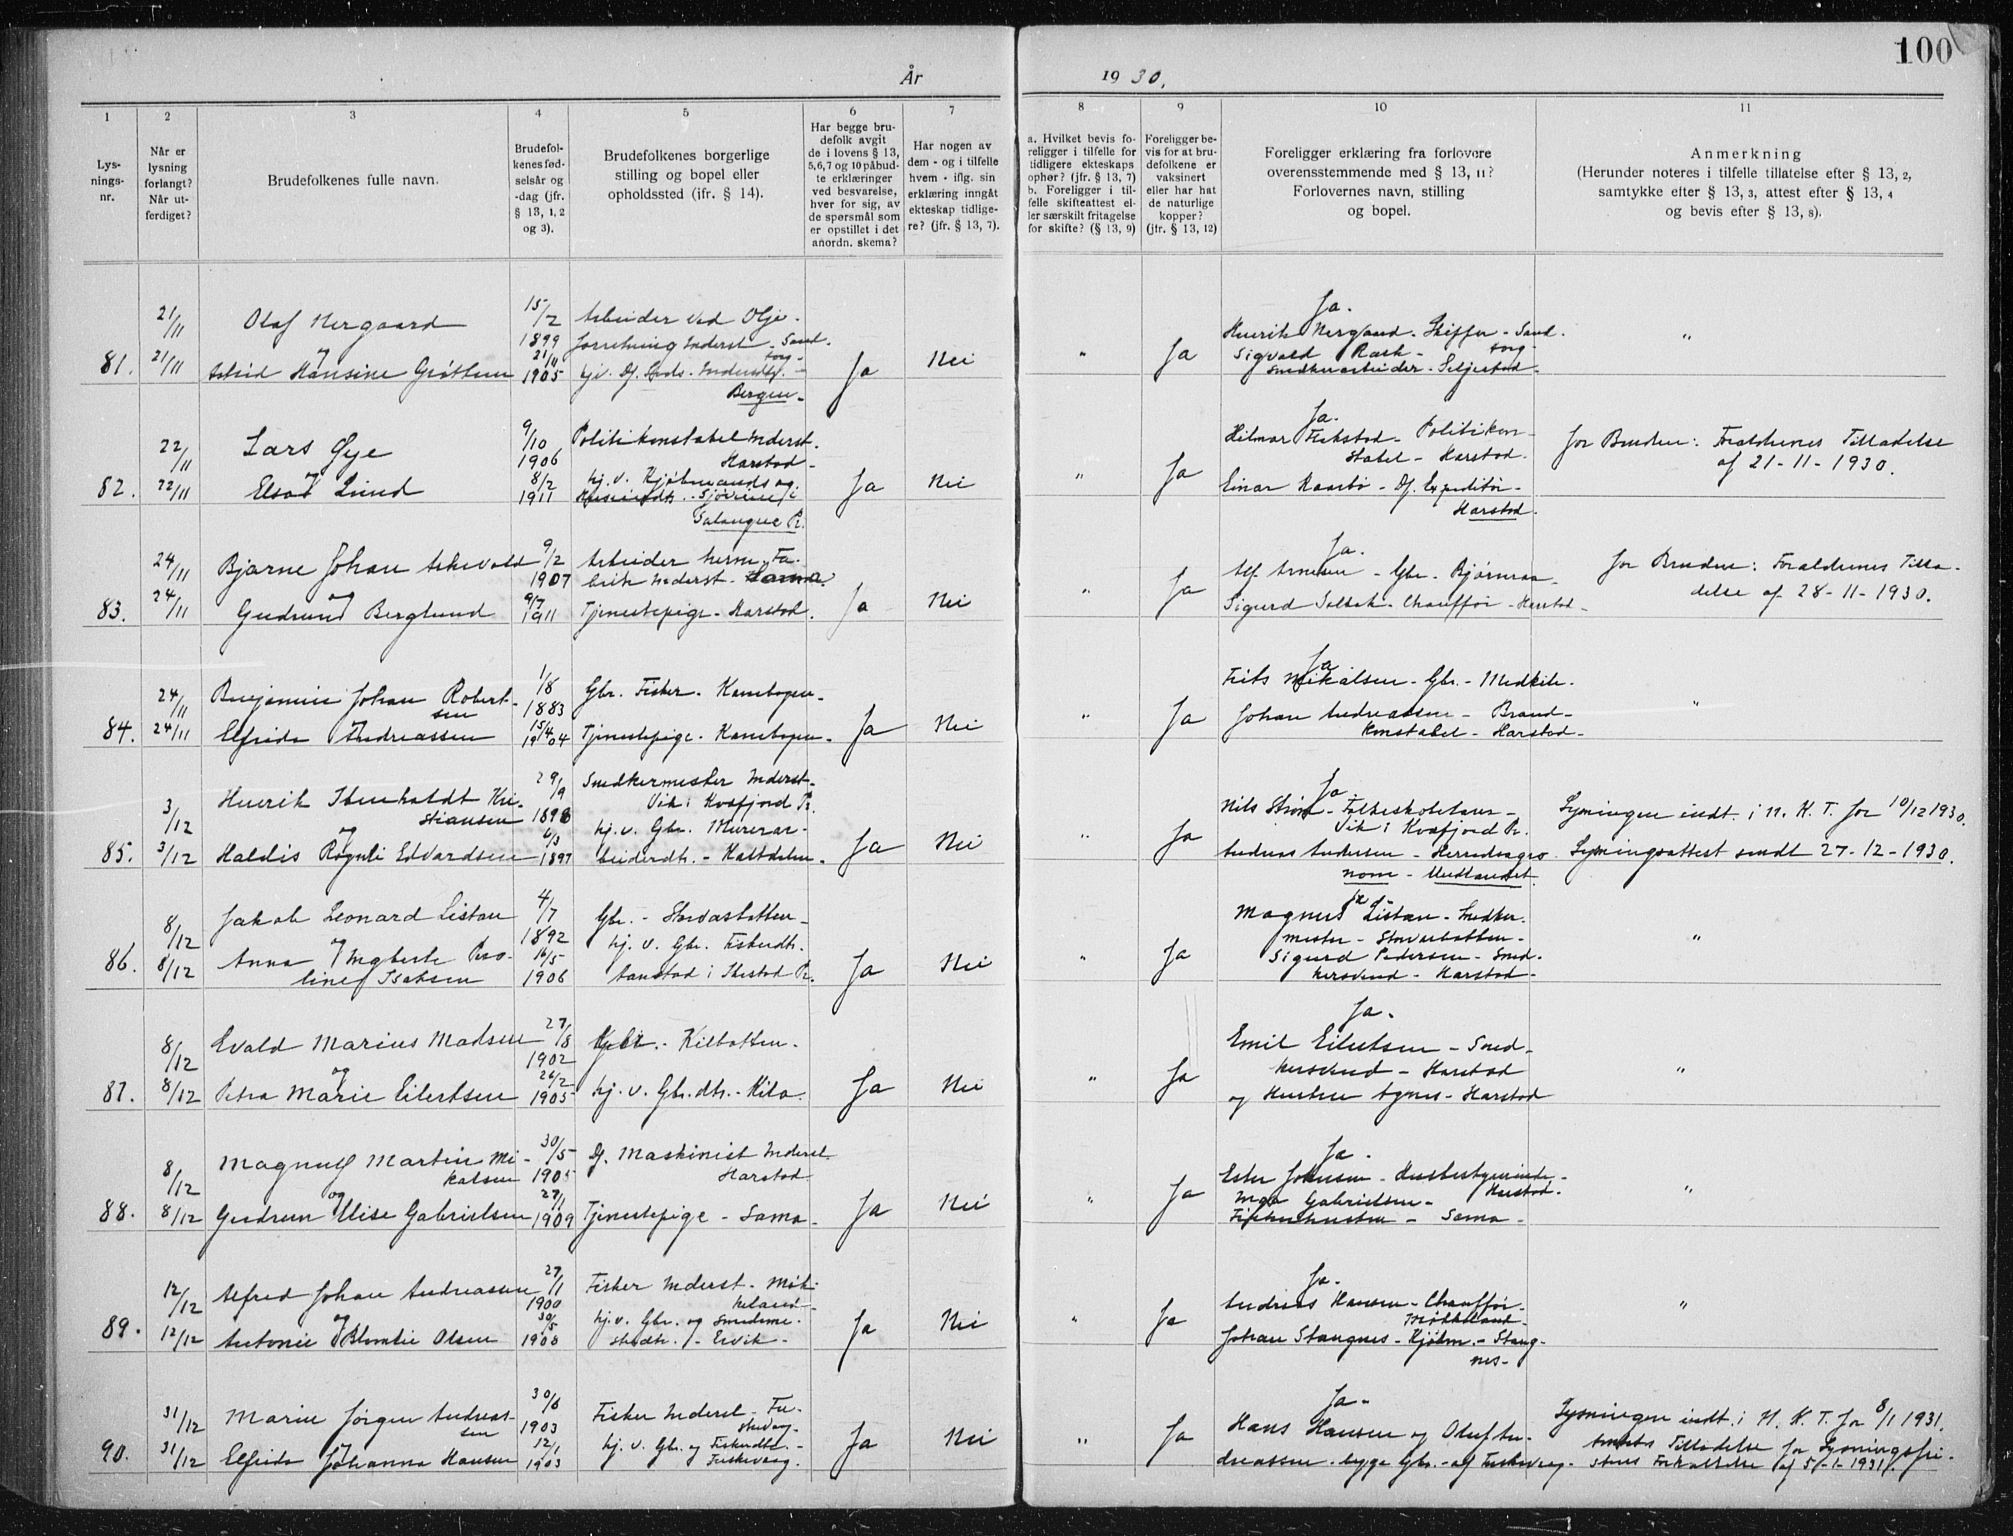 100
År 1930.
1 2 3 4 5 6 7 8 9 10 11
Lysningsnr.
Når er lysning forlangt? Når utferdiget?
Brudefolkenes fulle navn.
Brudefolkenes fødselsår og -dag (jfr. § 13, 1, 2 og 3).
Brudefolkenes borgerlige stilling og bopel eller opholdssted (jfr. § 14).
Har begge brudefolk avgit de i lovens § 13, 5,6,7 og 10 påbudte erklæringer ved besvarelse, hver for sig, av de spørsmål som er opstillet i det anordn. skema?
Har nogen av dem - og i tilfelle hvem - iflg. sin erklæring inngått ekteskap tidligere? (jfr. § 13, 7).
a. Hvilket bevis foreligger i tilfelle for tidligere ekteskaps ophør? (jfr. § 13, 7) b. Foreligger i tilfelle skifteattest eller særskilt fritagelse for skifte? (§ 13, 9)
Foreligger bevis for at brudefolkene er vaksinert eller har hat de naturlige kopper? (jfr. § 13, 12)
Foreligger erklæring fra forlovere overensstemmende med § 13, 11? Forlovernes navn, stilling og bopel.
Anmerkning
(Herunder noteres i tilfelle tillatelse efter § 13, 2, samtykke efter § 13, 3, attest efter § 13, 4 og bevis efter § 13, 8).
81. 21/11 21/11
Olaf Nergaard
og
Astrid Hansine Grøttum
15/2 1899
21/11 1905
Arbeider ved Olje-
forretning Inderst - Sand-
torg -
Bergen -
Ja Nei " Ja
Ja.
Henrik Nergaard - Skipper - Sand-
torg -
Sigvald Rask -
Snedkerarbeider - Seljestad -
"
82. 22/11 22/11
Lars Øye
og
Elsa Lund
9/10 1906
8/2 1911
Politikonstabel Inderst.
Harstad -
hj. v. Kjøbmands og
Sjøvein i
Salangen Pr.
Ja Nei " Ja
Ja.
Hilmar Fiskstad - Politikon-
stabel - Harstad.
Einar Kaarbø - Df. Expeditør -
Harstad.
for Bruden: Forældrenes Tilladelse
af 21-11-1930.
83. 24/11 24/11
Bjarne Johan Askevold
og
Gudrun Berglund
9/2 1907
9/7 1911
Arbeider Herm. Fa-
brik Inderst - Sama.
Tjenestepige - Harstad.
Ja Nei " Ja
Ja.
Alf Arnesen - Gbr. - Bjørnraa -
Sigurd Solbak - Chauffør - Harstad -
for Bruden: Forældrenes Tilla-
delse af 28-11-1930.
84. 24/11 24/11
Benjamin Johan Robert-
sen
Elfrida Andreassen
1/8 1883
15/4 1904
Gbr. Fisker - Kanebogen -
Tjenestepige - Kanebogen -
Ja Nei " Ja
Ja
Frits Mikalsen - Gbr. - Medkila.
Johan Andreassen - Brand-
konstabel - Harstad -
"
85. 3/12 3/12
Henrik Stenholdt Kri-
stiansen
og
Haldis Ragnli Edvardsen
29/9 1898
6/3 1897
Snedkermester Inderst -
Vik i Kvæfjord Pr.
hj. v. Gbr. Murerar-
beiderdtr. - Kaltdalen -
Ja Nei " Ja
Ja.
Nils Strøm - Folkeskolelærer -
Vik i Kvæfjord Pr.
Andreas Andersen - Herredsagro-
nom - Medkaadet.
Lysningen indt. i H. K. T. for 10/12 1930.
Lysningsattest sendt 27-12-1930.
86. 8/12 8/12
Jakob Leonard Listau
og
Anna Ingberte Pau-
line Isaksen
4/7 1892
16/5 1906
Gbr. - Storvasbotten -
hj. v. Gbr. Fiskerdtr.
Aanstad i Ibestad Pr.
Ja Nei " Ja
Ja -
Magnus Listau - Snedker-
mester - Storvasbotten -
Sigurd Pedersen - Sned-
kersvend - Harstad -
"
87. 8/12 8/12
Evald Marius Madsen
og
Petra Marie Eilertsen
27/8 1902
26/2 1905
Gbr. - Kilbotten -
hj. v. Gbr. dtr. - Kila.
Ja Nei " Ja
Ja.
Emil Eilertsen - Sned-
kersvend - Harstad
og Hustru Agnes - Harstad
"
88. 8/12 8/12
Magnus Martin Mi-
kalsen
og
Gudrun Elise Gabrielsen
30/5 1905
27/1 1909
Df. Maskinist Inderst
Harstad.
Tjenestepige - Sama -
Ja Nei " Ja
Ja.
Ester Johnsen - Husbestyrerinde -
Harstad.
Inga Gabrielsen -
Fiskerhustru - Sama -
"
89. 12/12 12/12
Alfred Johan Andreassen
og
Antonie Blomlie Olsen
27/1 1900
30/5 1908
Fisker Inderst - Møk-
keland -
hj. v. Gbr. og Smedeme-
sterdtr. - Ervik -
Ja Nei " Ja
Ja.
Andreas Hansen - Chauffør -
Møkkeland -
Johan Stangnes - Kjøbm. - Stang-
nes -
"
90. 31/12 31/12
Marin Jørgen Andreas-
sen
Elfrida Johanna Hansen
30/6 1903
12/1 1903
Fisker Inderst - Fu-
skevaag -
hj. v. Gbr. og Fiskerdtr. -
Fuskevaag -
Ja Nei " Ja
Ja -
Hans Hansen og Oluf An-
dreassen - begge Gbr. - af Fuskevaag -
Lysningen indt. i H. K. T. for 8/1 1931.
Amtets Tilladelse for Lysningsfri-
stens Forkortelse af 5-1-1931.